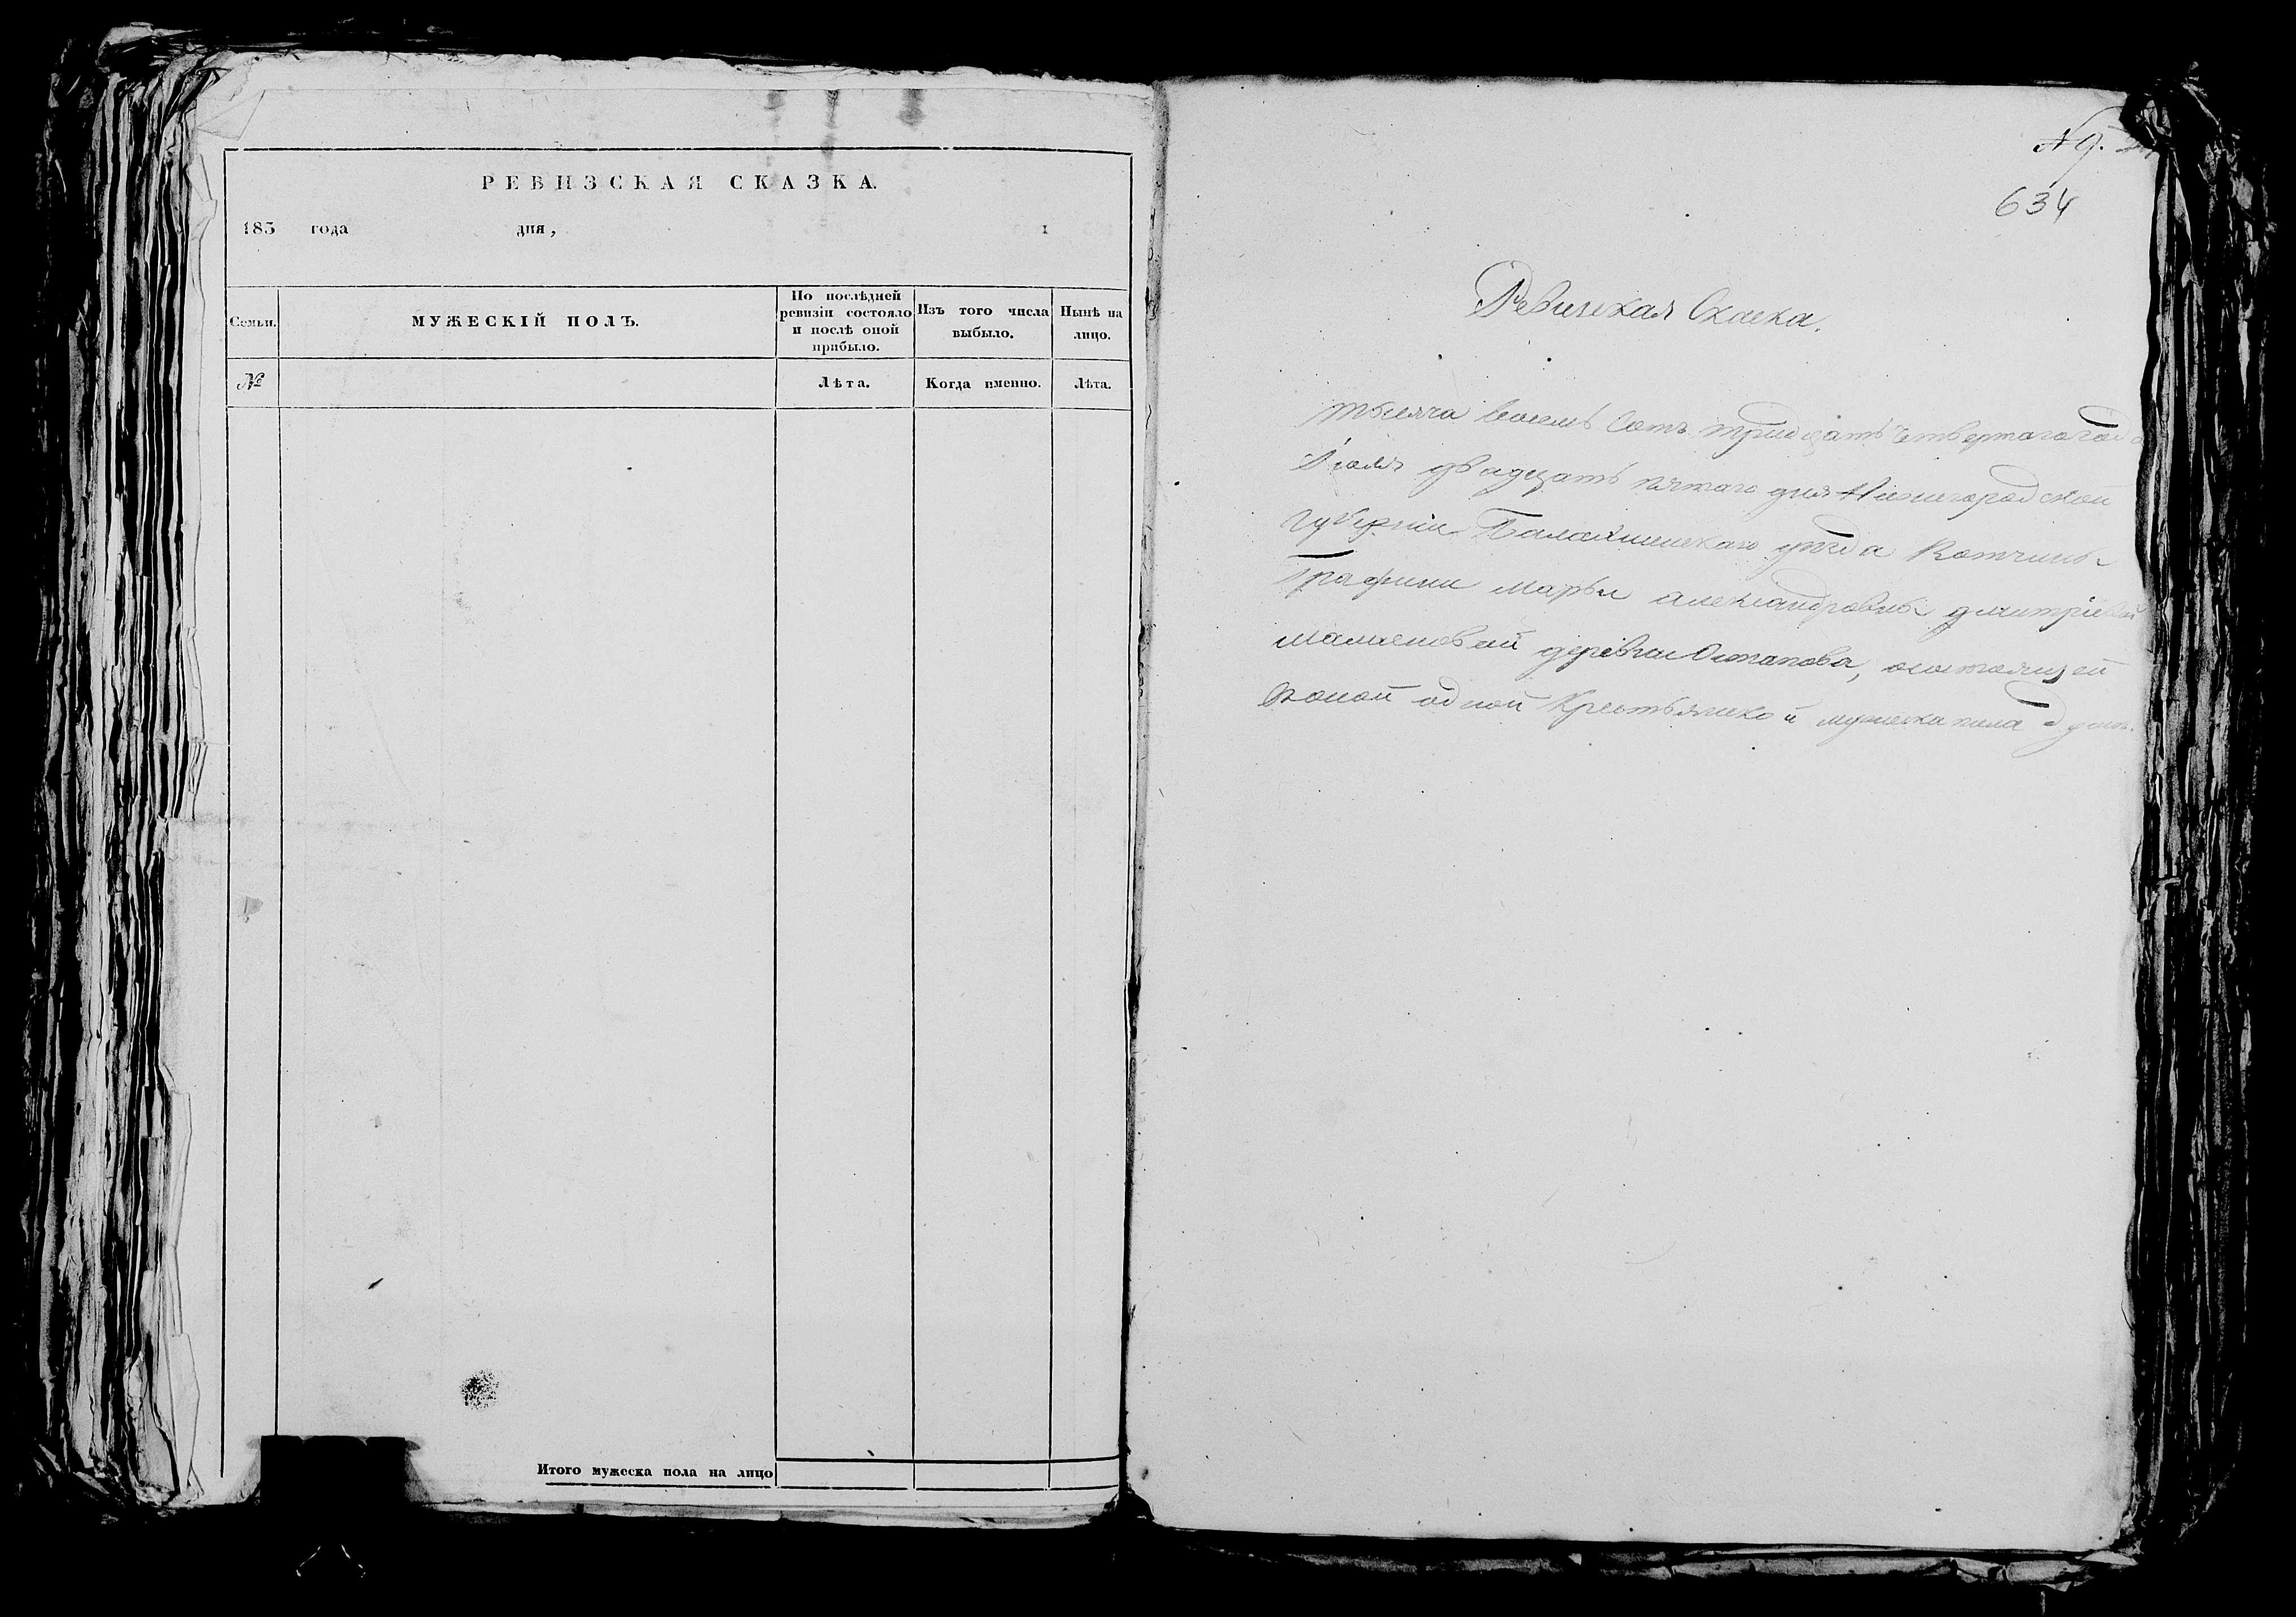 РЕВИЗСКАЯ СКАЗКА.
183 года дня,
Семьи.
МУЖЕСКІЙ ПОЛЪ.
По послѣдней
ревизіи состояло
и послѣ оной
прибыло.
Изъ того числа
выбыло.
Нынѣ на
лицо.
№
Лѣта.
Когда именно.
Лѣта.
Итого мужеска пола на лицо
№ 9.
634
Ревизская Скаска.
тысяча восемь Сотъ тридцать Четвертаго года
Іюля двадцать пятаго дня Нижегородской
Губерніи Балахнинскаго уѣзда Вотчины
Графини Марьи александровны дмитріевой
Мамоновой деревни Остапова, осостоящей
воной одной Крестьянской мужеска пола душъ.